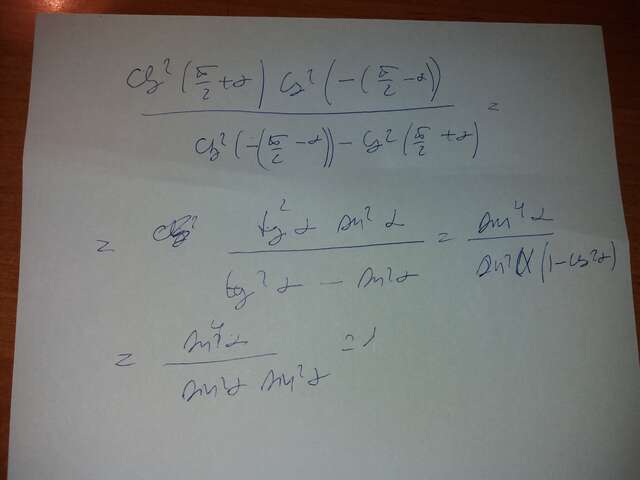 ctg²(π/2+α) cos²(-(π/2-α))
ctg²(-(π/2-α)) - cos²(π/2+α) =
= tg²α sin²α / tg²α - sin²α = sin⁴α / sin²α(1-cos²α)
= sin⁴α / sin²α sin²α = 1